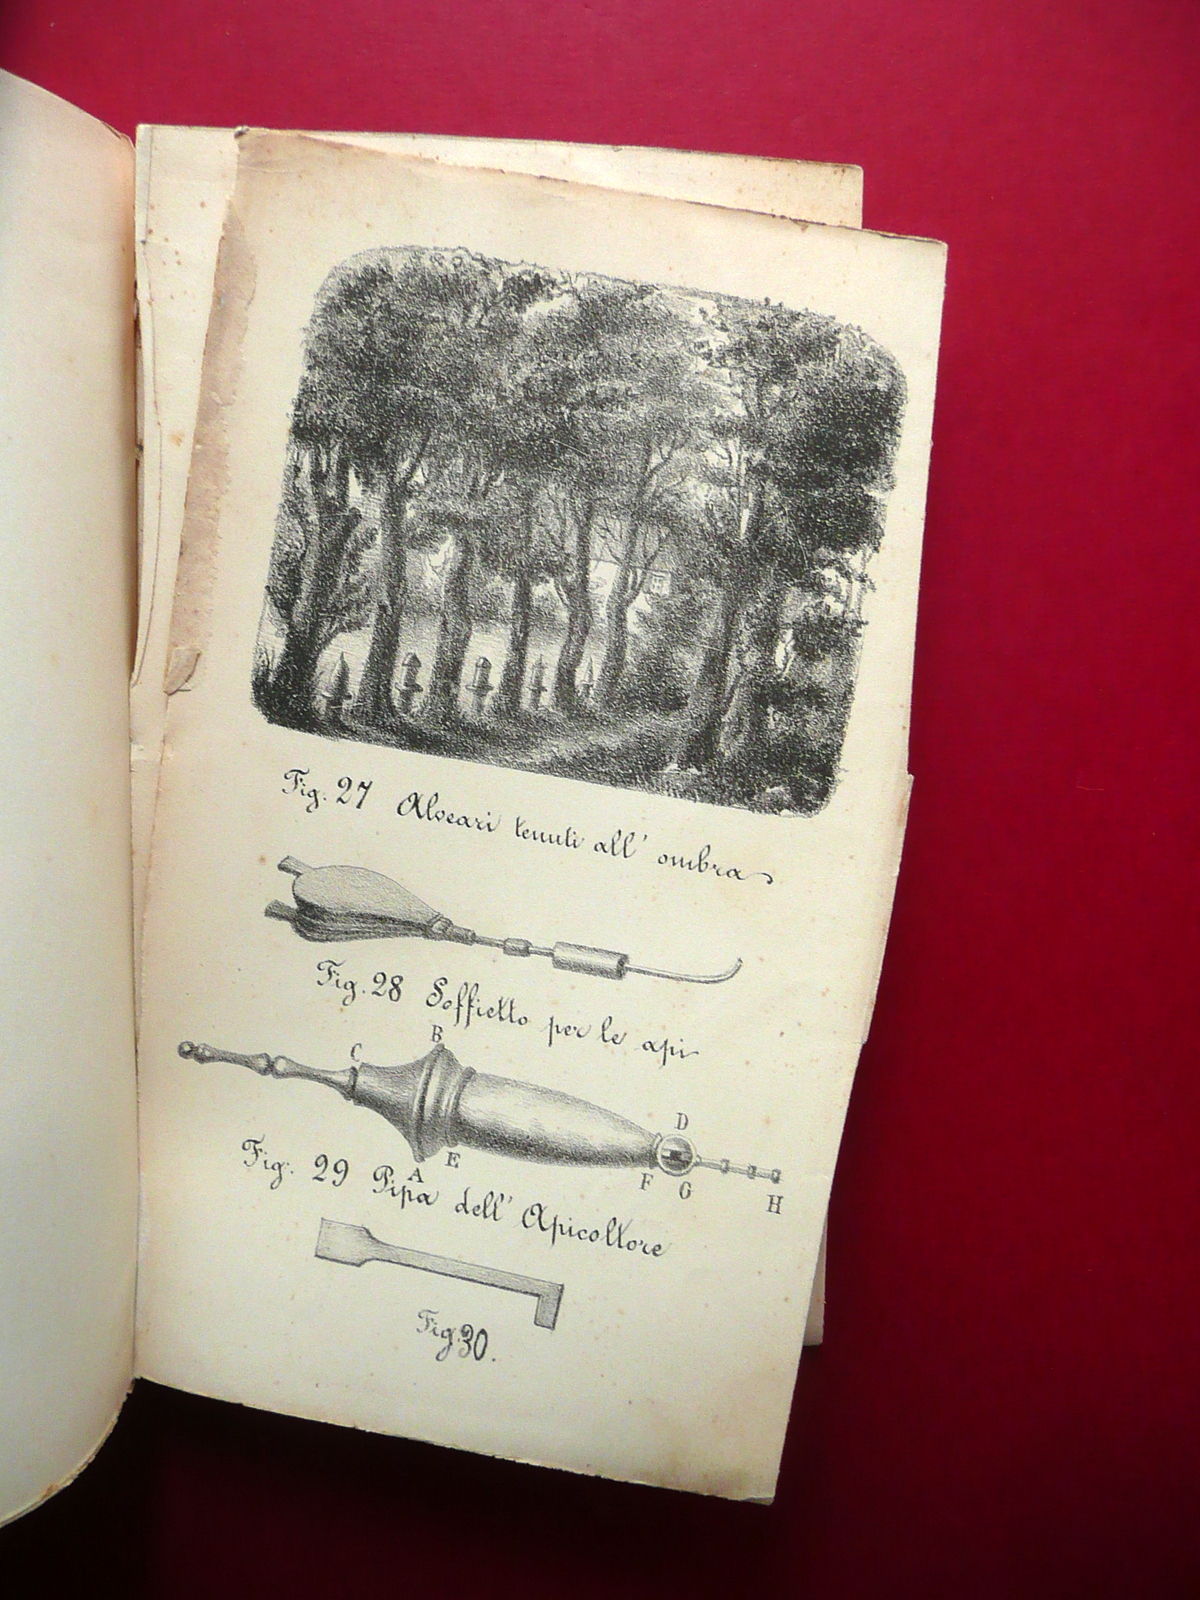 Fig. 27 Alveari tenuti all' ombra
Fig. 28 Soffietto per le api
B
C
D
E
A
F
G
H
Fig. 29 Pipa dell' Apicoltore
Fig. 30.